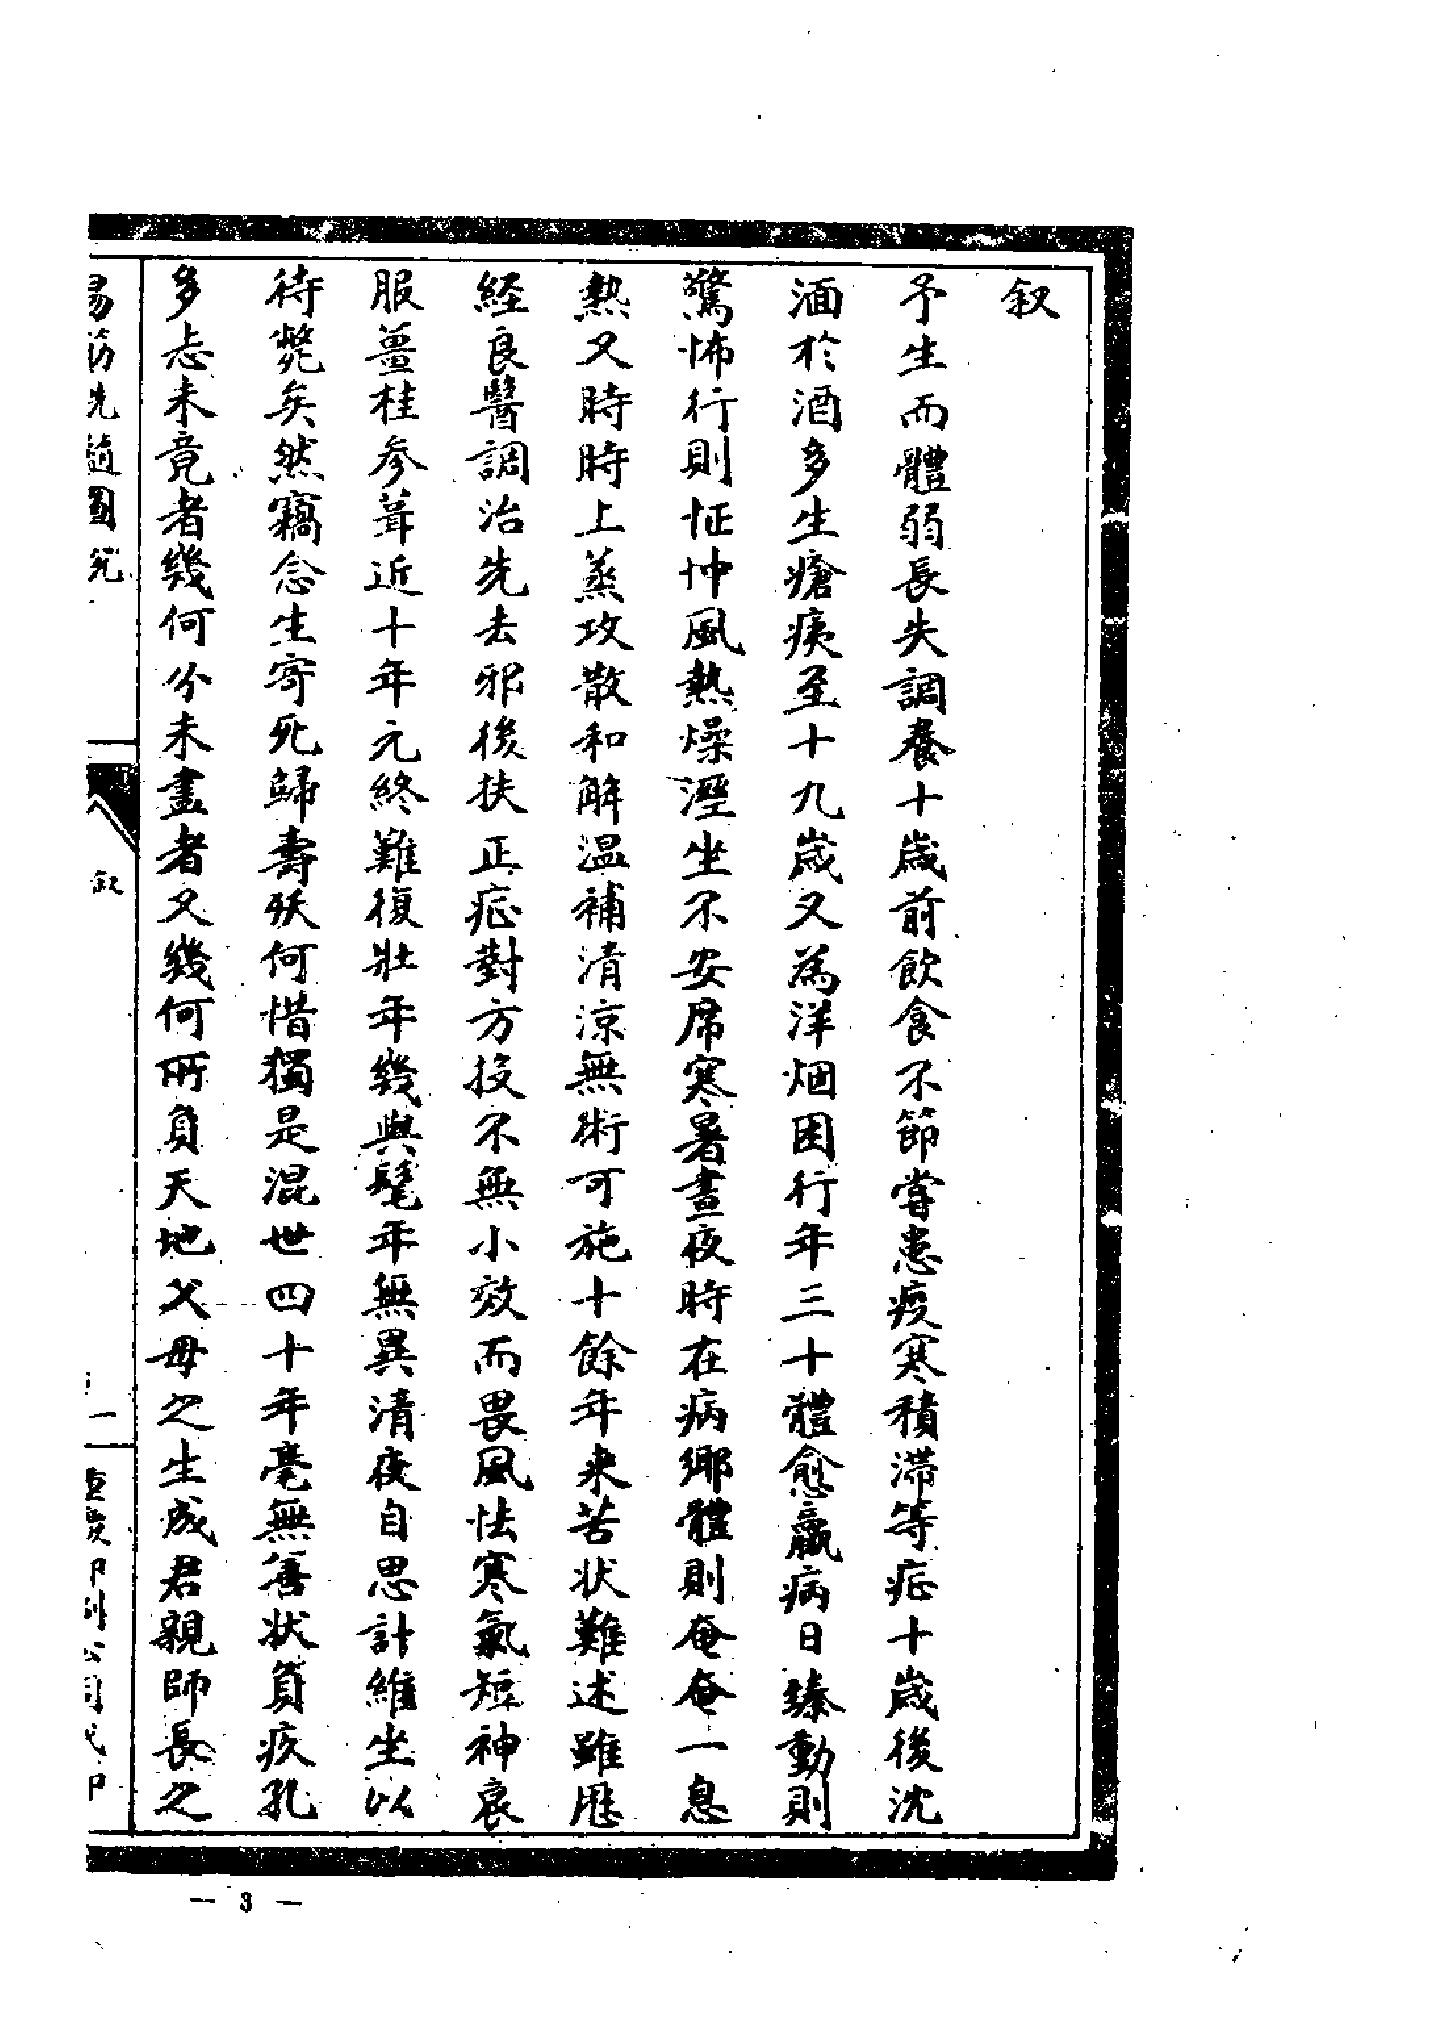 叙
予生而體弱長失調養十歲前飲食不節嘗患痰寒積滯等症十歲後沈
湎於酒多生瘡痍至十九歲又為洋烟困行年三十體愈羸病日臻動則
驚怖行則怔忡風熱燥溼坐不安席寒暑晝夜時在病鄉體則奄奄一息
熱又時時上蒸攻散和解温補清涼無術可施十餘年来苦状難述雖歴
経良醫調治先去邪後扶正症對方投不無小效而畏風怯寒氣短神衰
服薑桂參茸近十年元終難復壯年幾與髦年無異清夜自思計維坐以
待斃矣然竊念生寄死歸壽殀何惜獨是混世四十年毫無善状負疚孔
多志未竟者幾何分未盡者又幾何所負天地父母之生成君親師長之
易筋洗髓圖説
叙
一
重慶印刷公司代印
— 3 —